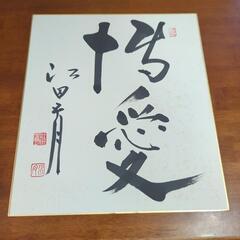 博愛
江田五月